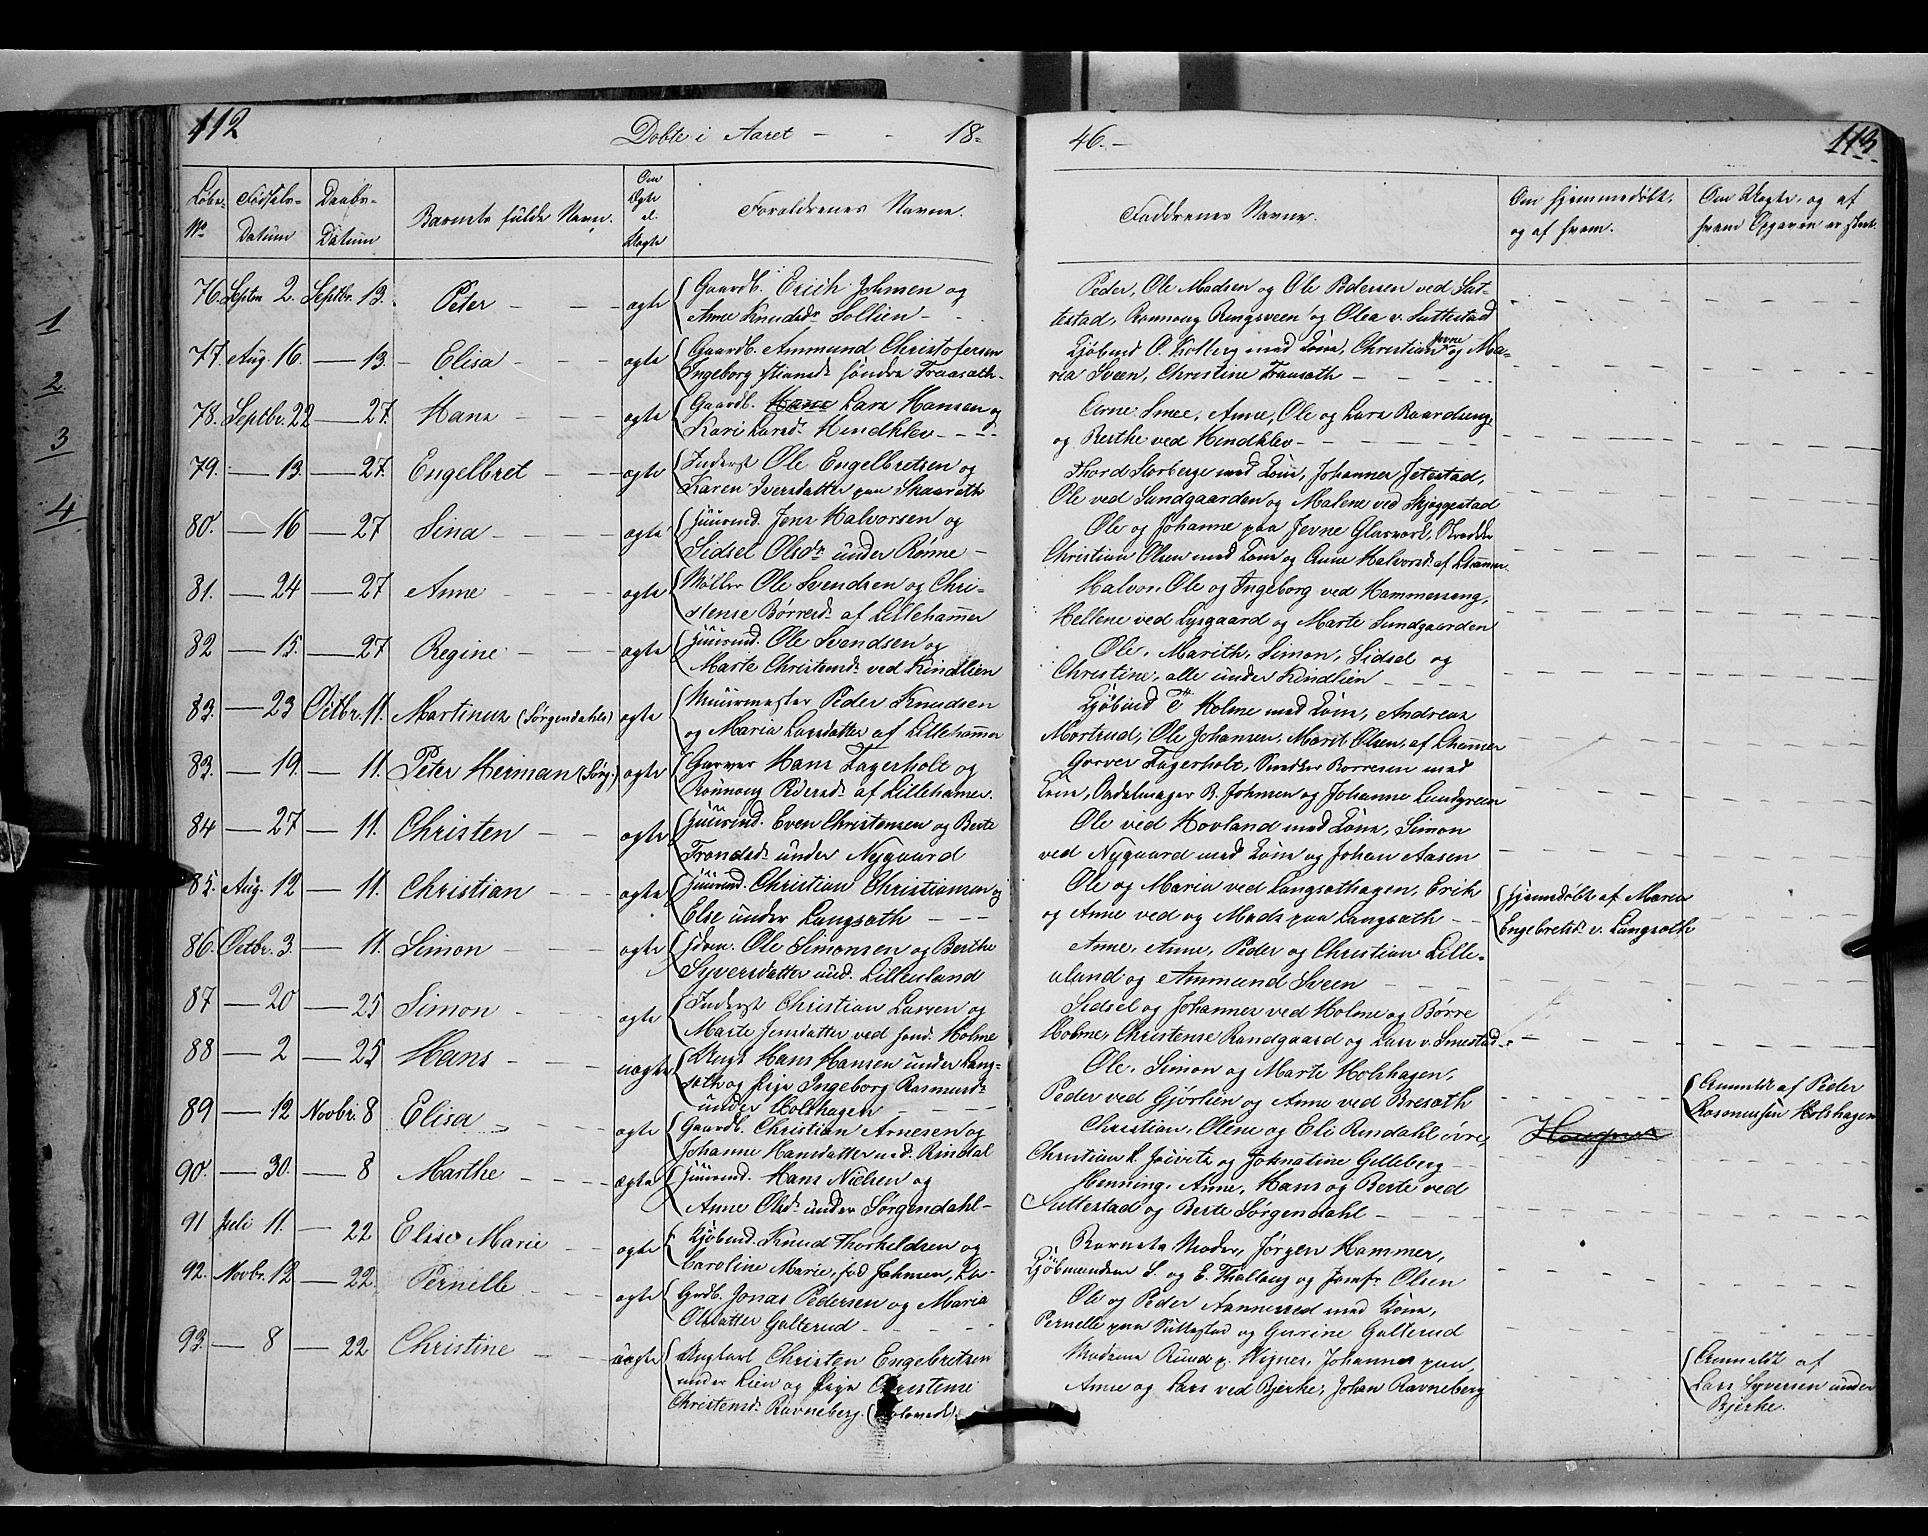 112 Døbte i Aaret - - 18-
46.- 113.
Løbe- No Fødsels- Datum Daabs- Datum Barnets fulde Navn. Om Ægte el. Uægte Forældrenes Navne.
Faddrenes Navne. Om hjemmedøbt, og af hvem. Om Uægte, og af hvem Opgaven er skeet.
1
2
3
4
76. Septbr 2. Septbr. 13. Peter - - - ægte Gaardb. Erich Johnsen og
Anne Knudsdr Sollien -
Peder, Ole Madsen og Ole Pedersen ved Sut-
testad, Rønnoug Ringsveen og Olea v. Suttestad
77. Aug. 16. — 13. - Elisa - - - ægte Gaardb. Ammund Christofersen
Ingeborg Stiansd. søndre Traasath.
Kjøbmd O. Kolberg med Kone, Christian Arne og Ma-
ria Sveen, Christine Traasath
78. Septbr. 22 — 27. Hans - - ægte Gaardb. Hans Lars Hansen og
Kari Larsdr. Hindklev - - -
Arne Smee, Anne, Ole og Lars Baardseng
og Berthe ved Hindklev - - -
79. — 13. — 27. Engelbret - - ægte Inderst Ole Engelbretsen og
Karen Iversdatter paa Skaareth
Thord Storberge med Kone, Johannes Jetestad,
Ole ved Sundgaarden og Malene ved Skjæggestad
80. — 16 — 27 Sina - - - ægte Huusmd. Jens Halvorsen og
Sidsel Olsdr under Rønne -
Ole og Johanne paa Jevne Glasværk, Skrædder
Christian Olsen med Kone og Anne Halvorsd. af Lhamer.
81. — 24 — 27 Anne - - - ægte Møller Ole Svendsen og Chri-
stense Børresd. af Lillehamer
Halvor, Ole og Ingeborg ved Hammerseng,
Hellene ved Lysgaard og Marte Sundgaarden
82 — 15. — 27 Regine - - - ægte Huusmd. Ole Svendsen og
Marte Christensd. ved Kindlien
Ole, Marith, Simon, Sidsel og
Christine, alle under Kindlien - - -
83. — 23 Octbr. 11. Martinus (Sørgendahls) ægte Muurmester Peder Knudsen
og Maria Larsdatter af Lillehamer
Kjøbmd T. Holme med Kone, Andreas
Mortrud, Ole Johansen, Marit Olsen, af Lhamer
83. — 19. — 11. Peter Herman (Sørg.) ægte Garver Hans Fagerholt og
Rønnoug Pedersd. af Lillehamer.
Garver Fagerholt, Snedker Børresen med
Kone, Sadelmager B. Johnsen og Johanne Lundgreen
84 — 27 — 11. Christen - - ægte Huusmd. Even Christensen og Berte
Trondsd. under Nygaard
Ole ved Hovland med Kone, Simon
ved Nygaard med Kone og Johan Aasen
85. Aug. 12 — 11. Christian - - - ægte Huusmd. Christian Christiansen og
Else under Langsæth - - -
Ole og Maria ved Langsæthagen, Erik
og Anne ved og Mads paa Langsæth - -
Hjemmdøbt af Maria
Engebretsd. v. Langsæth
86. Octbr. 3. — 11. Simon ægte Ole Simonsen og Berthe
Syversdatter und. Lilleuland
Anne, Anne, Peder og Christian Lille-
uland og Ammund Sveen - - -
87 — 20 — 25 Simon - - - ægte Inderst Christian Larsen og
Marte Jensdatter ved sønd. Holme
Sidsel og Johannes ved Holme og Børre
Holme, Christense Randgaard og Lars v. Smestad
88 — 2 — 25 Hans - - - uægte Ungk. Hans Hansen under Lang-
sæth og Pige Ingeborg Rasmusd.
under Holshagen - - -
Ole, Simon og Marte Holshagen,
Peder ved Gjørlien og Anne ved Bresæth
Anmeldt af Peder
Rasmussen Holshagen
89 — 12 Novbr. 8 Elisa - - - ægte Gaardb. Christian Arnesen og
Johanne Hansdatter ned. Rindal
Christian, Olene og Eli Rindahl øvre,
Christian L. og Johnatine Gilleberg
90. — 30. — 8 Marthe - - - ægte Huusmd. Hans Nielsen og
Anne Olsd. under Sørgendahl -
Henning, Anne, Hans og Berte ved
Suttestad og Berte Sørgendahl -
91 Juli 11. — 22 Elise Marie - ægte Kjøbmd. Knud Thorkeldsen og
Caroline Marie, fød Johnsen,
Barnets Moder, Jørgen Hammer,
Kjøbmændene S. og E. Thallaug og Jomfr. Olsen
92. Novbr. 12 — 22. Pernelle - - ægte Grdb. Jonas Pedersen og Maria
Olsdatter Galterud - - -
Ole og Peder Aannerud med Kone,
Pernelle paa Suttestad og Gurine Galterud
93. — 8 — 22 Christine - - uægte Ungkarl Christen Engebretsen
under Lien og Pige Christense
Christensd. Ravneberg.
Madsine Ruud p. Vignes, Johannes paa,
Anne og Lars ved Bjerke, Johan Ravneberg
Anmeldt af
Lars Syversen under
Bjerke.